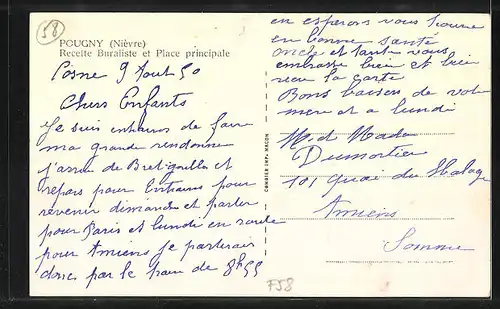 58
POUGNY (Nièvre)
Recette Buraliste et Place principale
Cosne 9 Aout 50
Chers Enfants
Je suis entrain de faire
ma grande randonnée
j'arrive de et
repars pour pour
revenir dimanche et partir
pour Paris et lundi en route
pour Amiens je partirais
donc par le train de 8h55
en esperons vous trouver
en bonne santé
oncle et tante vous
embrasse bien et bien
recu la carte
Bons baisers de votre
mere et a lundi
COMBIER IMP. MACON
M. et Madame
Dumortier
101 quai du Halage
Amiens
Somme
F58